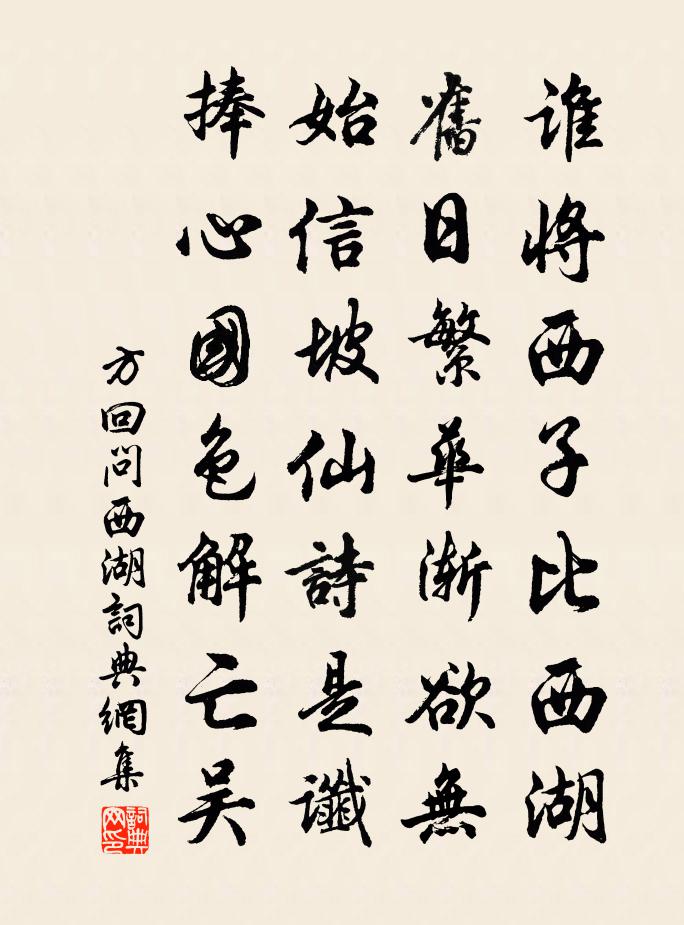 誰將西子比西湖
舊日繁華漸欲無
始信坡仙詩是讖
捧心國色解亡吴
方回問西湖詞典網集
詞典網印